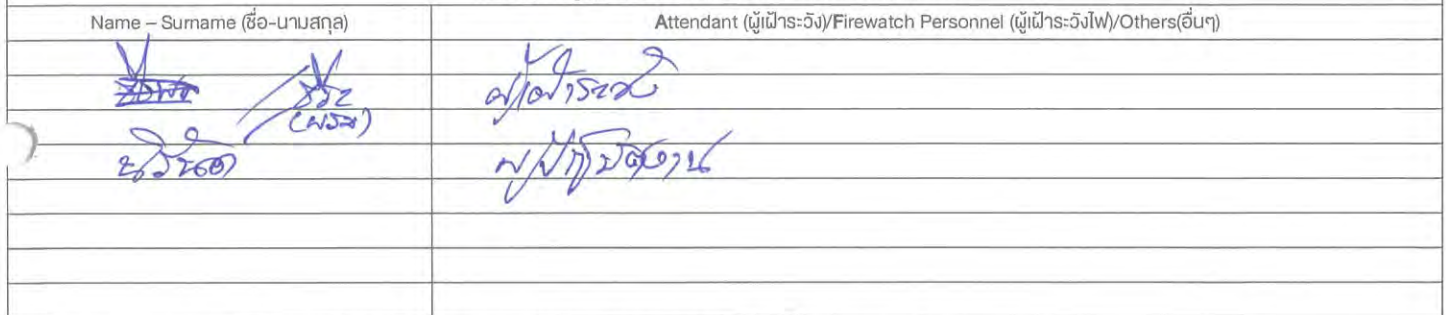 Name – Surname (ชื่อ-นามสกุล) Attendant (ผู้เฝ้าระวัง)/Firewatch Personnel (ผู้เฝ้าระวังไฟ)/Others(อื่นๆ)
ผู้เฝ้าระวัง
ผู้ปฏิบัติงาน